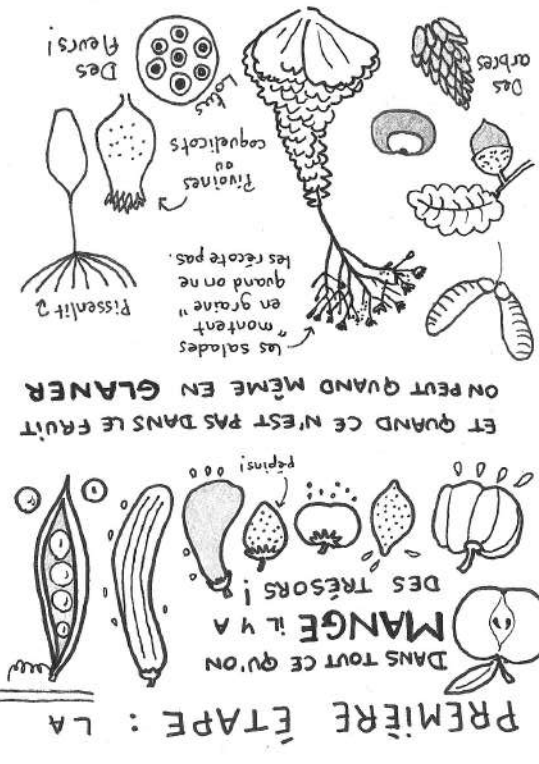 PREMIÈRE ÉTAPE : LA
DANS TOUT CE QU'ON
MANGE iL Y A
DES TRÉSORS !
pépins!
ET QUAND CE N'EST PAS DANS LE FRUIT
ON PEUT QUAND MÊME EN GLANER
Les salades
"montent
en graine"
quand on ne
les récote pas.
Pissenlit
Pivoines
ou
coquelicots
Lotus
Des
fleurs!
Des
arbres